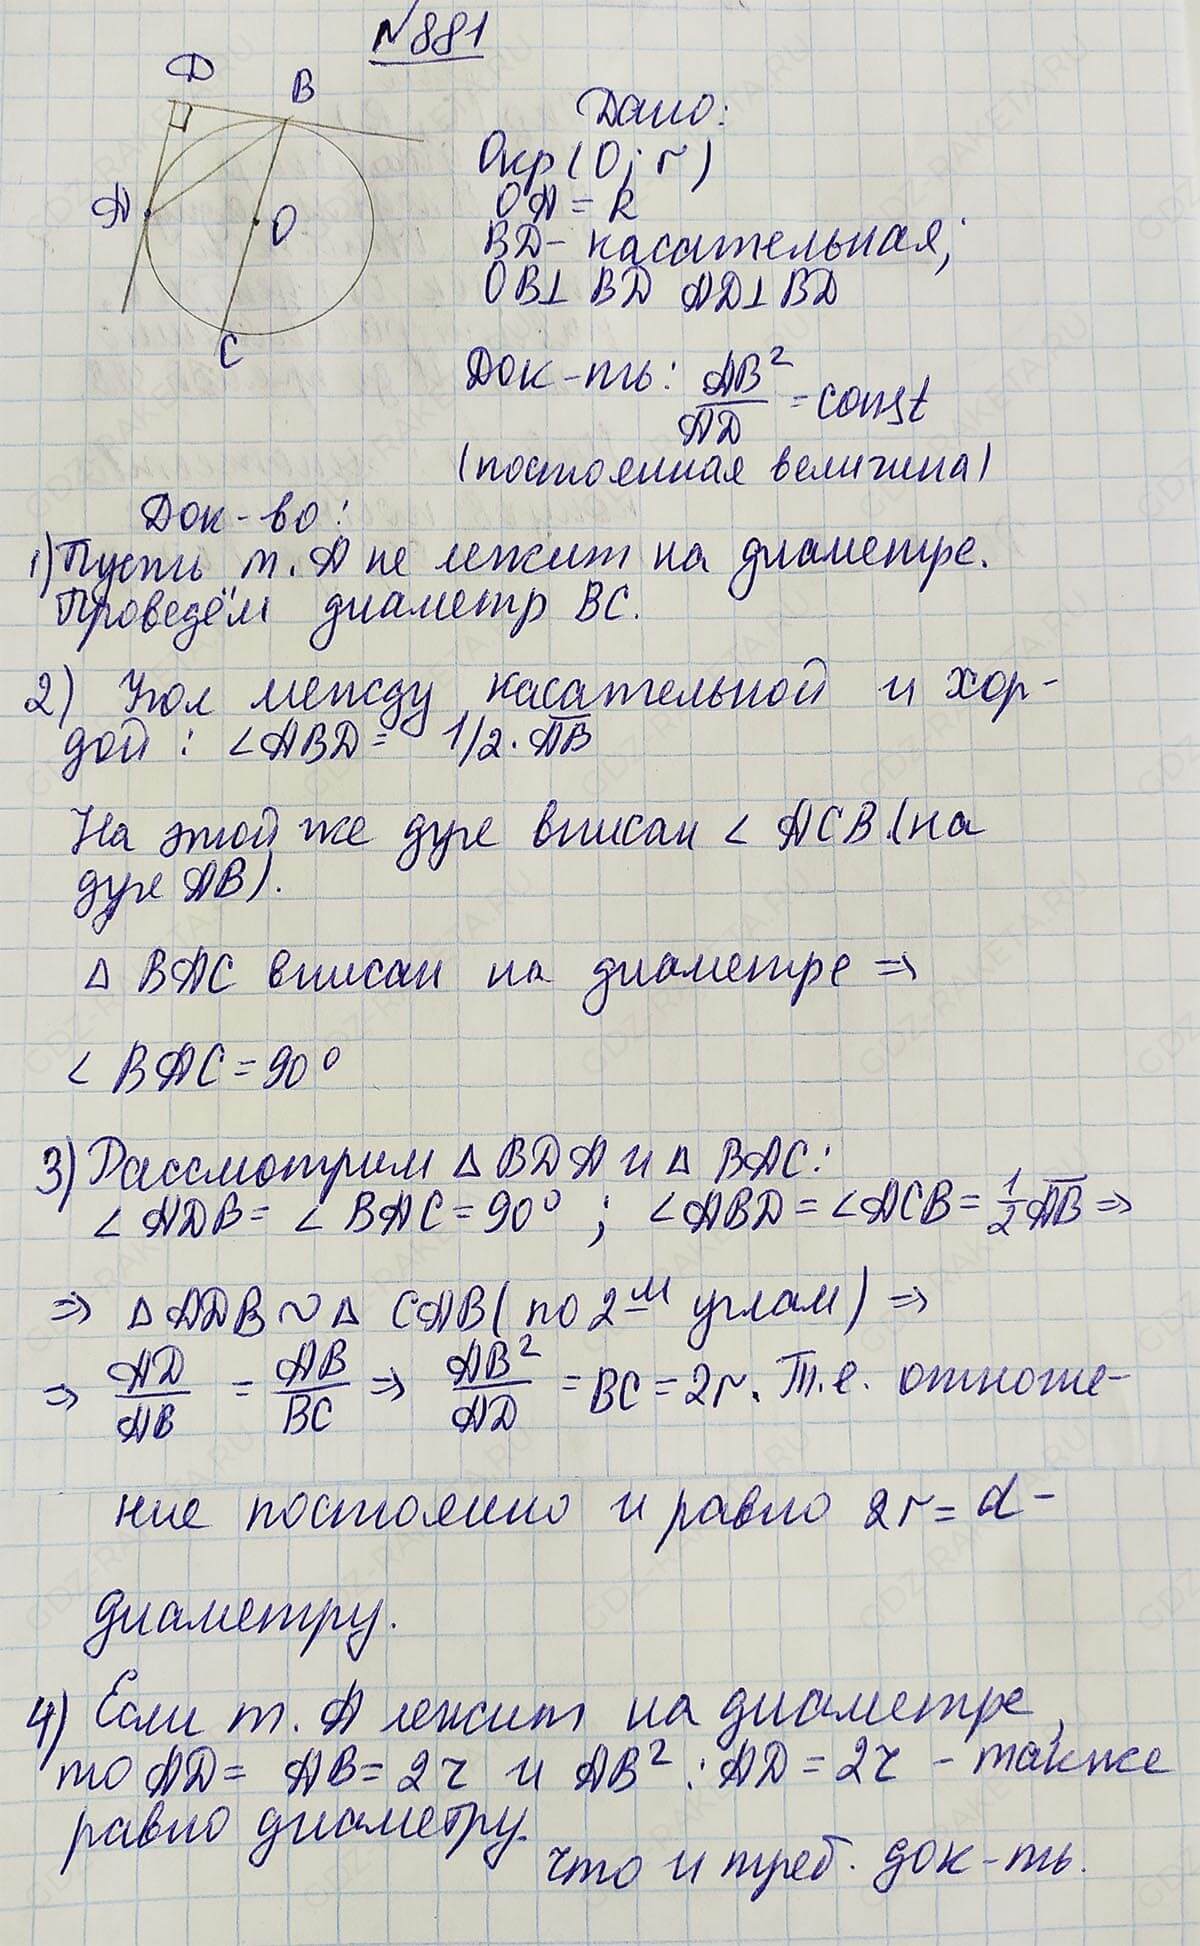 №881
D
B
A
O
C
Дано:
Окр(O; r)
OA = R
BD - касательная;
OB⊥ BD AD⊥BD
Док-ть: AB²/AD = const
(постоянная величина)
Док-во:
1) Пусть т. A не лежит на диаметре.
Проведём диаметр BC.
2) Угол между касательной и хор-
дой: ∠ABD = 1/2 · AB
На этой же дуге вписан ∠ ACB (на
дуге AB).
△ BAC вписан на диаметре ⇒
∠ BAC = 90°
3) Рассмотрим △ BDA и △ BAC:
∠ ADB = ∠ BAC = 90° ; ∠ABD = ∠ACB = 1/2 AB ⇒
⇒ △ ADB ~ △ CAB (по 2м углам) ⇒
⇒ AD/AB = AB/BC ⇒ AB²/AD = BC = 2r. Т.е. отноше-
ние постоянно и равно 2r = d -
диаметру.
4) Если т. A лежит на диаметре,
то AD = AB = 2r и AB² : AD = 2r - также
равно диаметру.
Что и треб. док-ть.
GDZ-RAKETA.RU